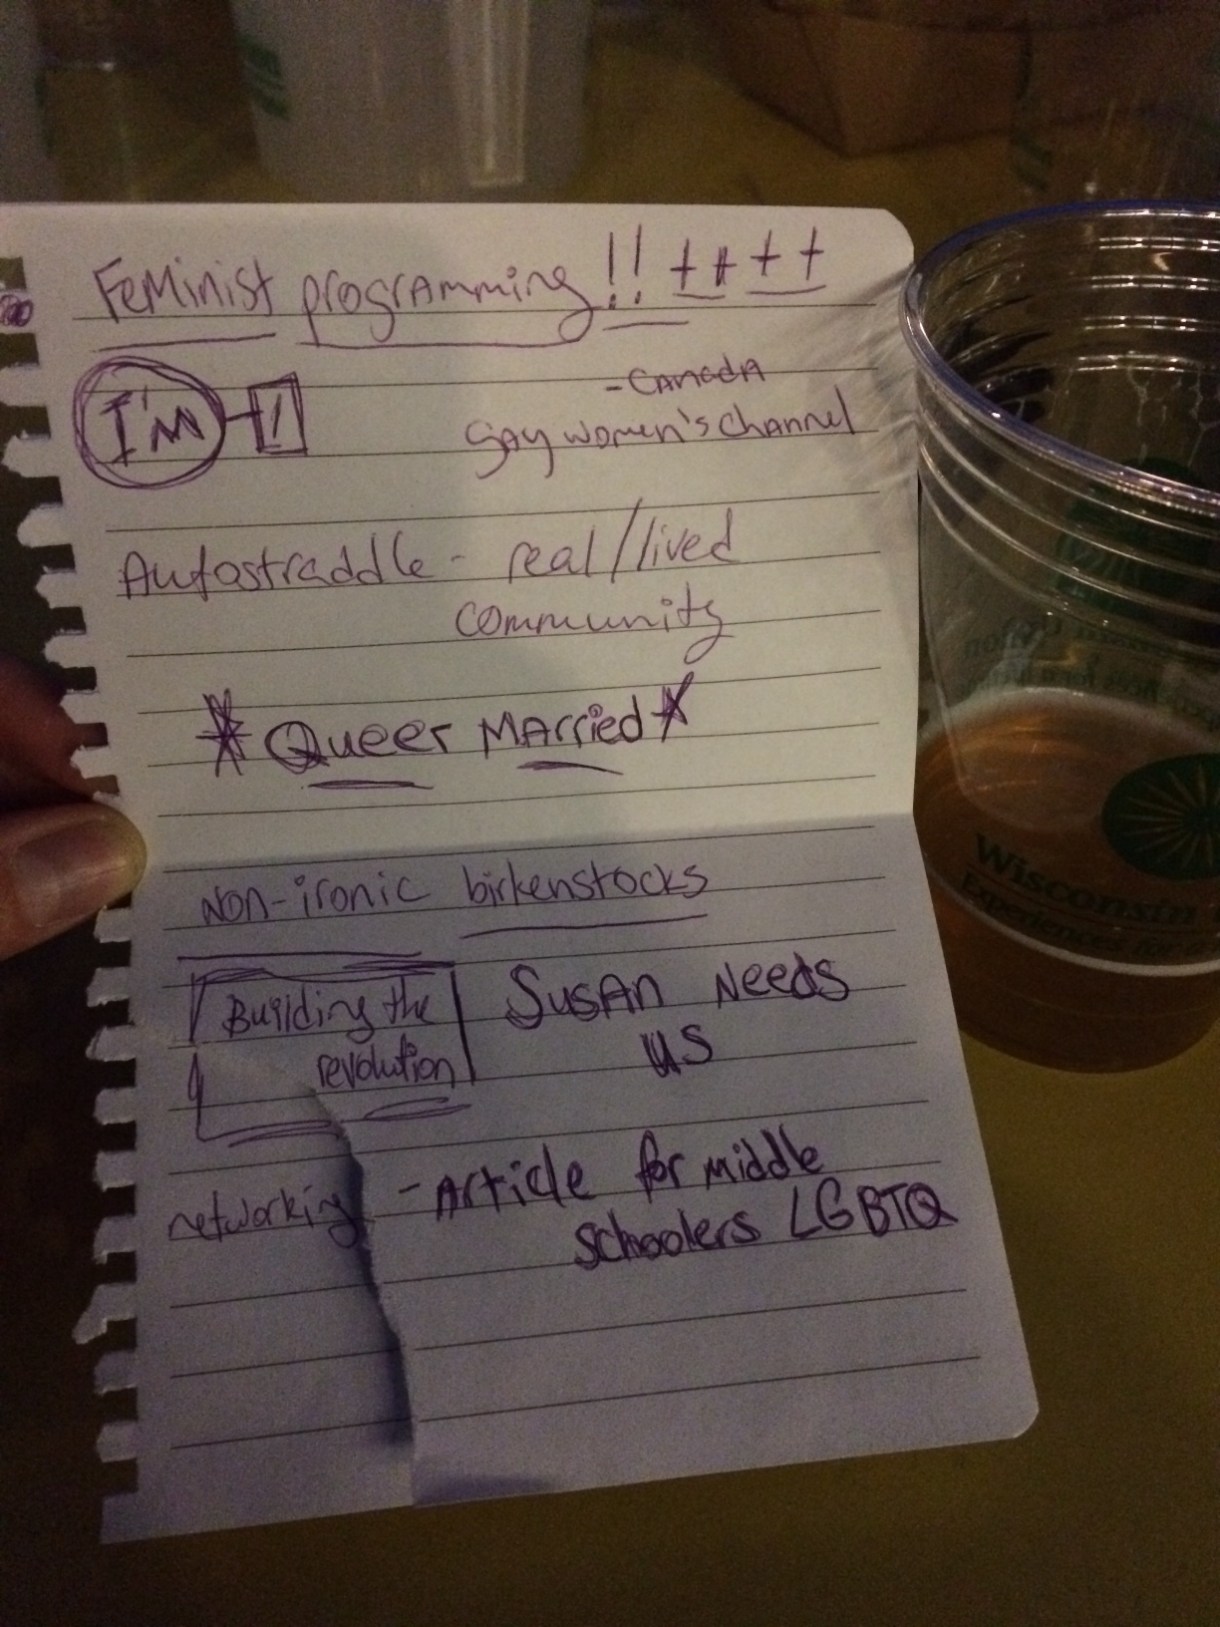 Feminist programming!! ++ ++
I'm !
- Canada
gay women's channel
Autostraddle - real/lived
community
* Queer Married *
Non-ironic birkenstocks
Building the
revolution
Susan Needs
us
networking
- Article for middle
schoolers LGBTQ
Wisconsin
Experiences for